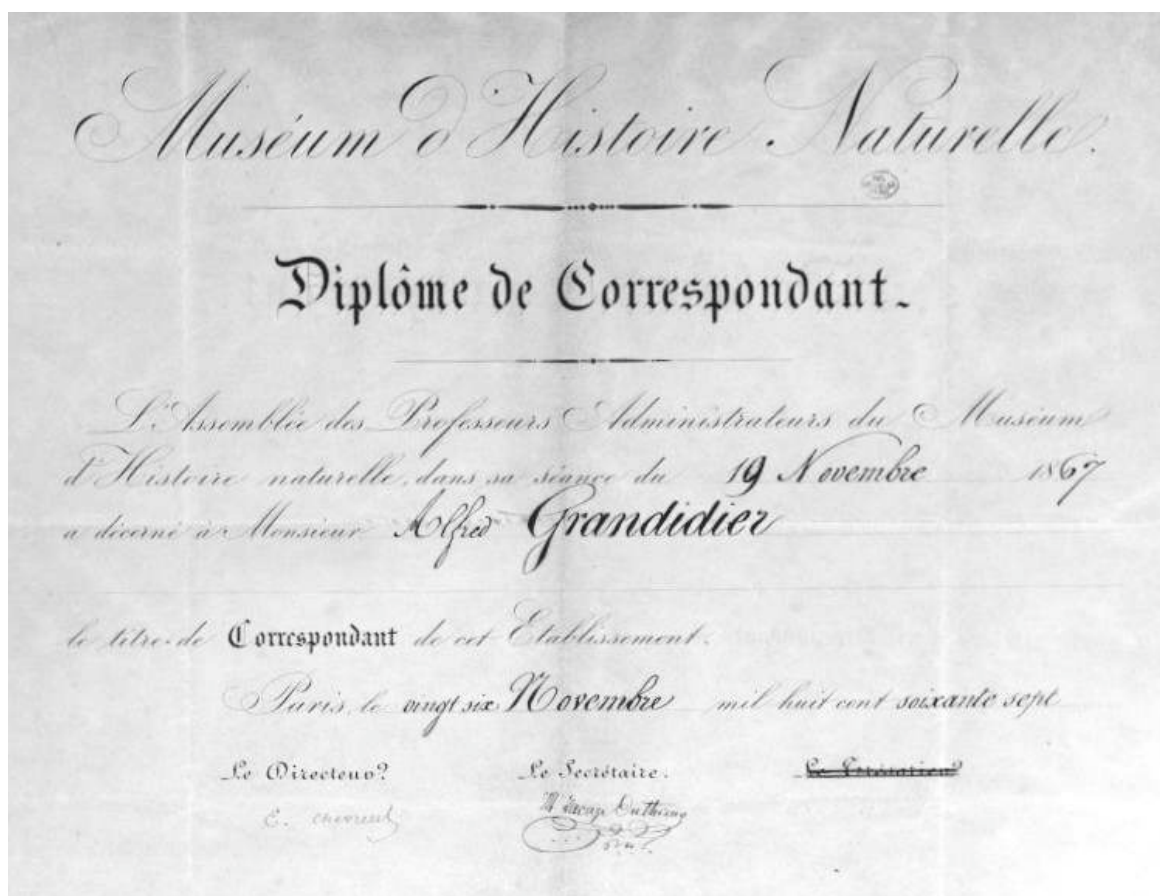 Muséum d'Histoire Naturelle.
Diplôme de Correspondant.
L'Assemblée des Professeurs Administrateurs du Muséum
d'Histoire naturelle, dans sa séance du 19 Novembre 1867
a décerné à Monsieur Alfred Grandidier
le titre de Correspondant de cet Etablissement.
Paris, le vingt six Novembre mil huit cent soixante sept
Le Directeur Le Secrétaire.
E. Chevreul